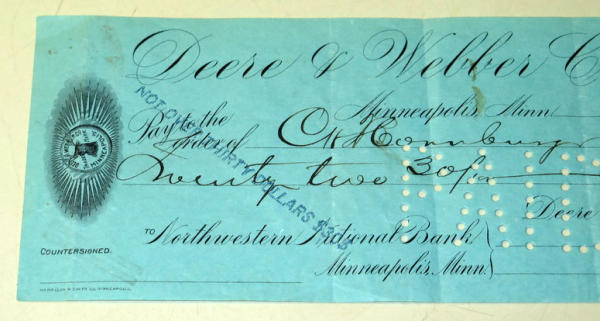 Deere & Webber C
Minneapolis, Minn.
NOT OVER THIRTY DOLLARS $30$
Pay to the order of
Twenty two 30/
Deere
TO Northwestern National Bank
Minneapolis, Minn.
COUNTERSIGNED.